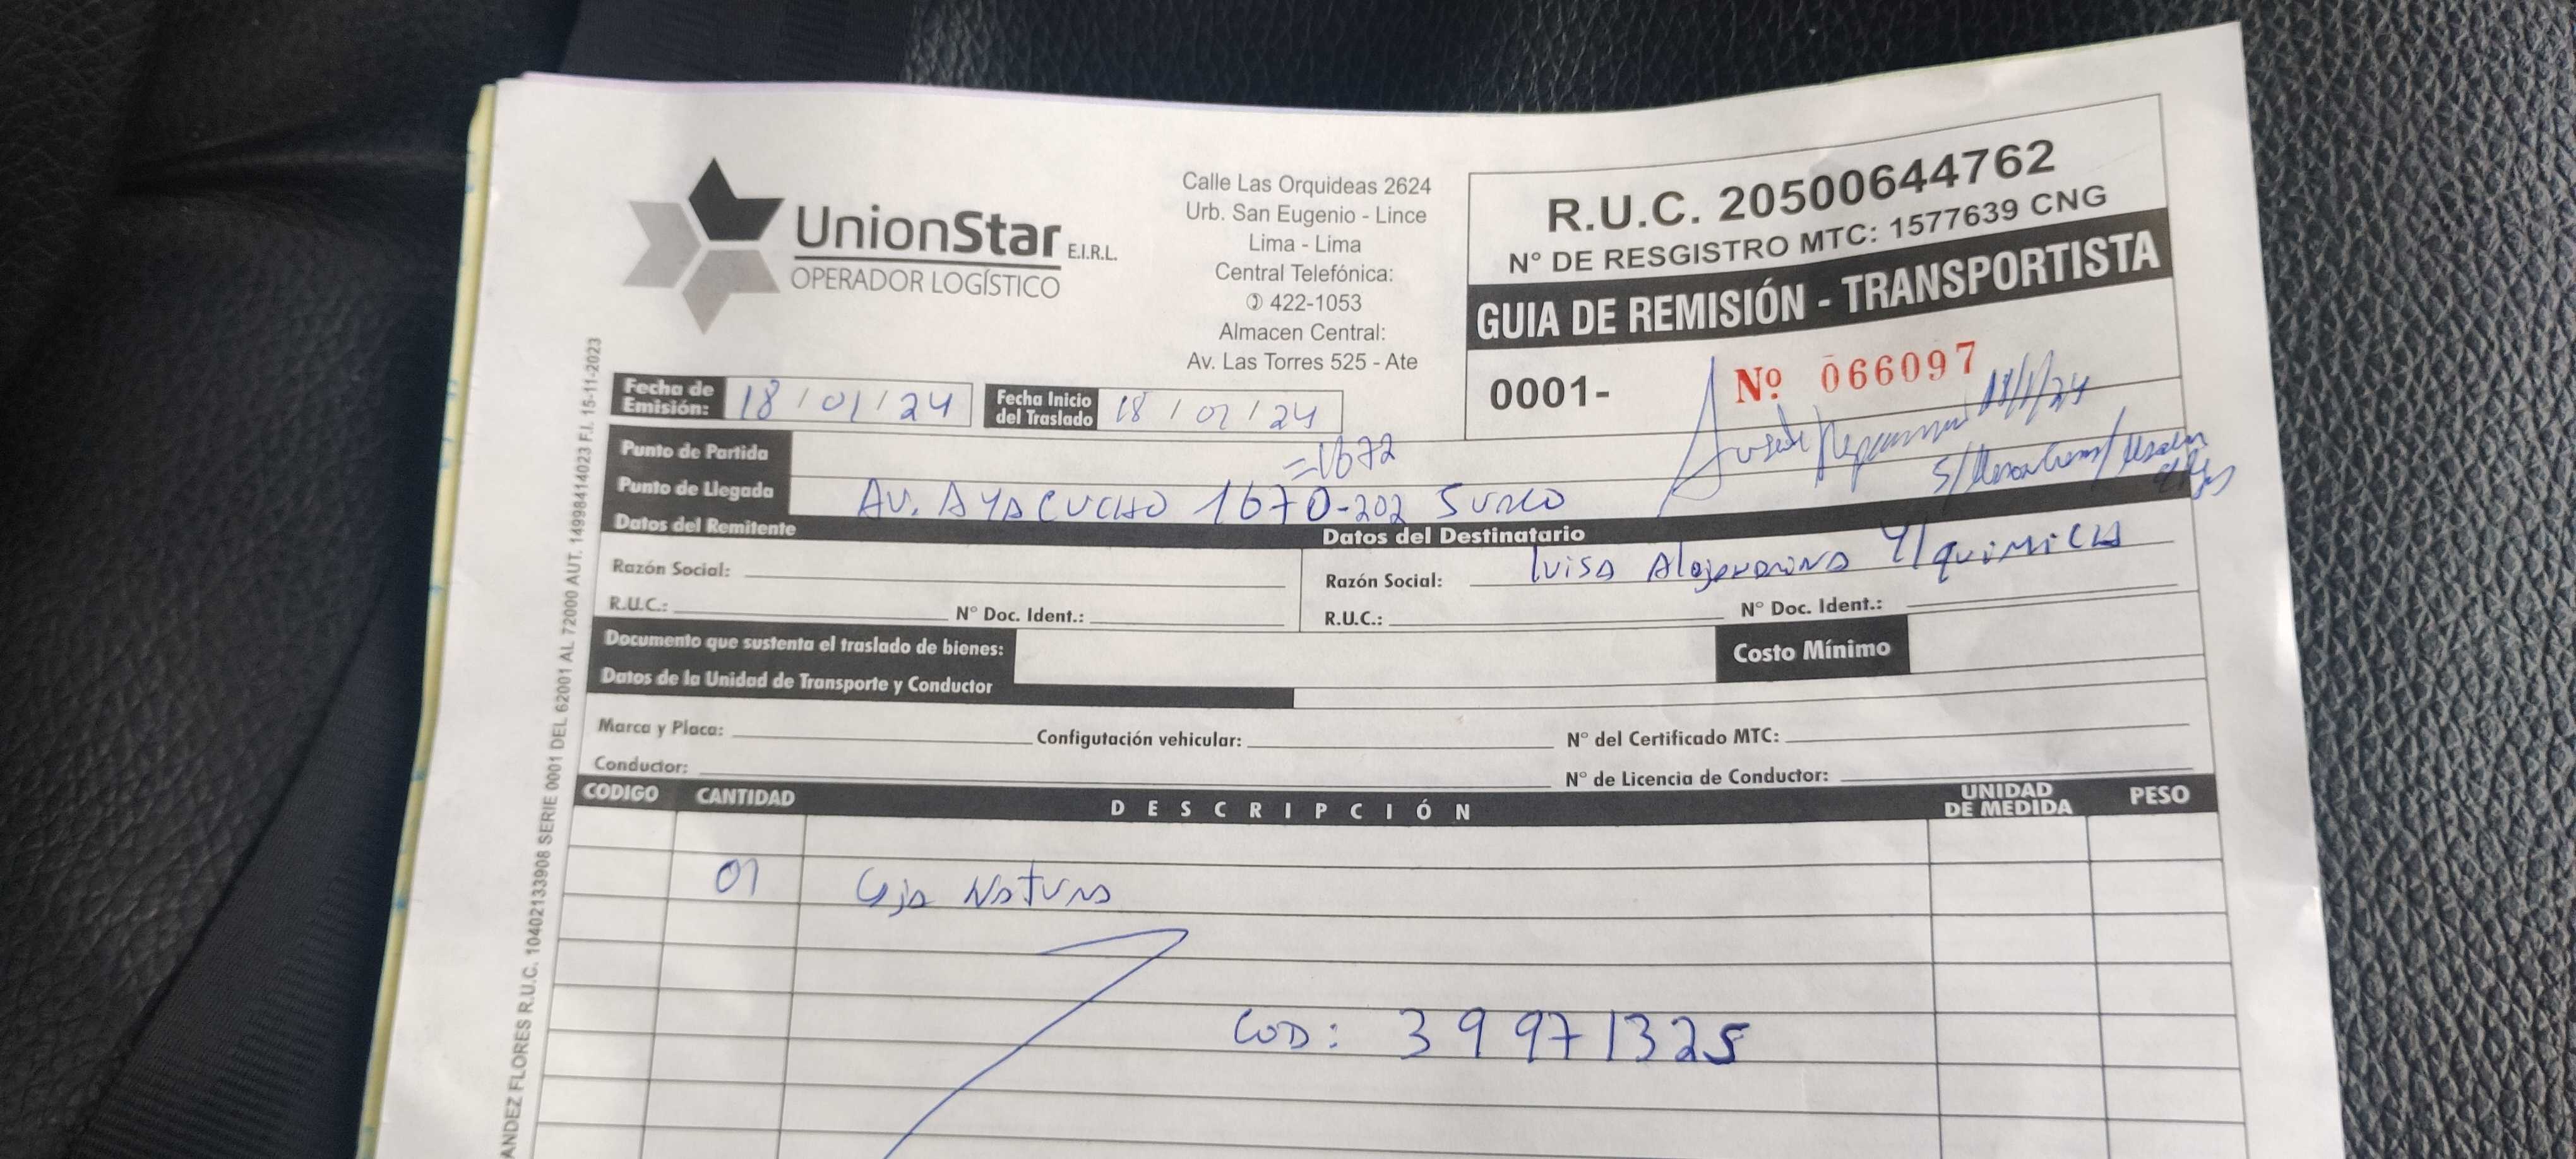 UnionStar E.I.R.L.
OPERADOR LOGÍSTICO
Calle Las Orquideas 2624
Urb. San Eugenio - Lince
Lima - Lima
Central Telefónica:
422-1053
Almacen Central:
Av. Las Torres 525 - Ate
R.U.C. 20500644762
N° DE RESGISTRO MTC: 1577639 CNG
GUIA DE REMISIÓN - TRANSPORTISTA
0001- Nº 066097
Fecha de Emisión: 18 / 01 / 24 Fecha Inicio del Traslado 18 / 01 / 24
Punto de Partida
=1672
Punto de Llegada AV. AYACUCHO 1670-202 SURCO
Datos del Remitente Datos del Destinatario
Razón Social: Razón Social: Luisa Alejandrina
R.U.C.: N° Doc. Ident.: R.U.C.: N° Doc. Ident.:
Documento que sustenta el traslado de bienes: Costo Mínimo
Datos de la Unidad de Transporte y Conductor
Marca y Placa: Configutación vehicular: N° del Certificado MTC:
Conductor: N° de Licencia de Conductor:
CODIGO CANTIDAD DESCRIPCIÓN UNIDAD DE MEDIDA PESO
01 Caja Natura
COD: 39971325
ANDEZ FLORES R.U.C. 10402133908 SERIE 0001 DEL 62001 AL 72000 AUT. 14998414023 F.I. 15-11-2023